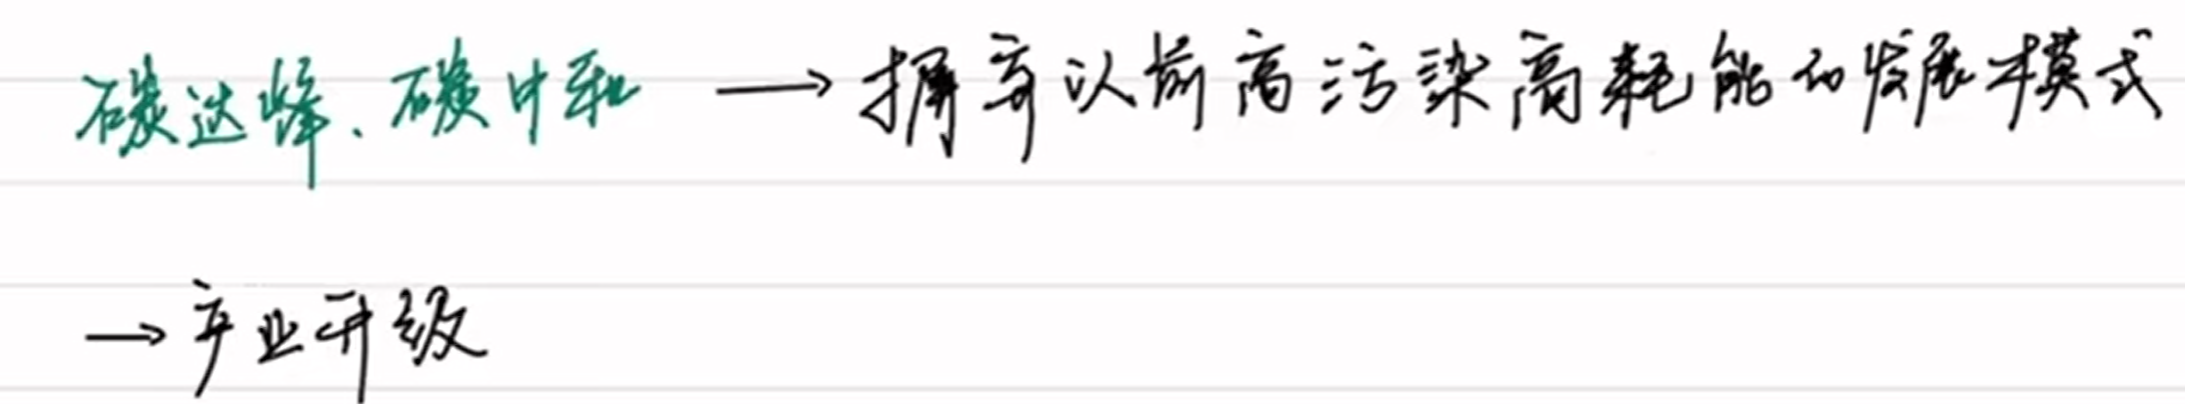 碳达峰、碳中和 → 摒弃以前高污染高耗能的发展模式
→ 产业升级